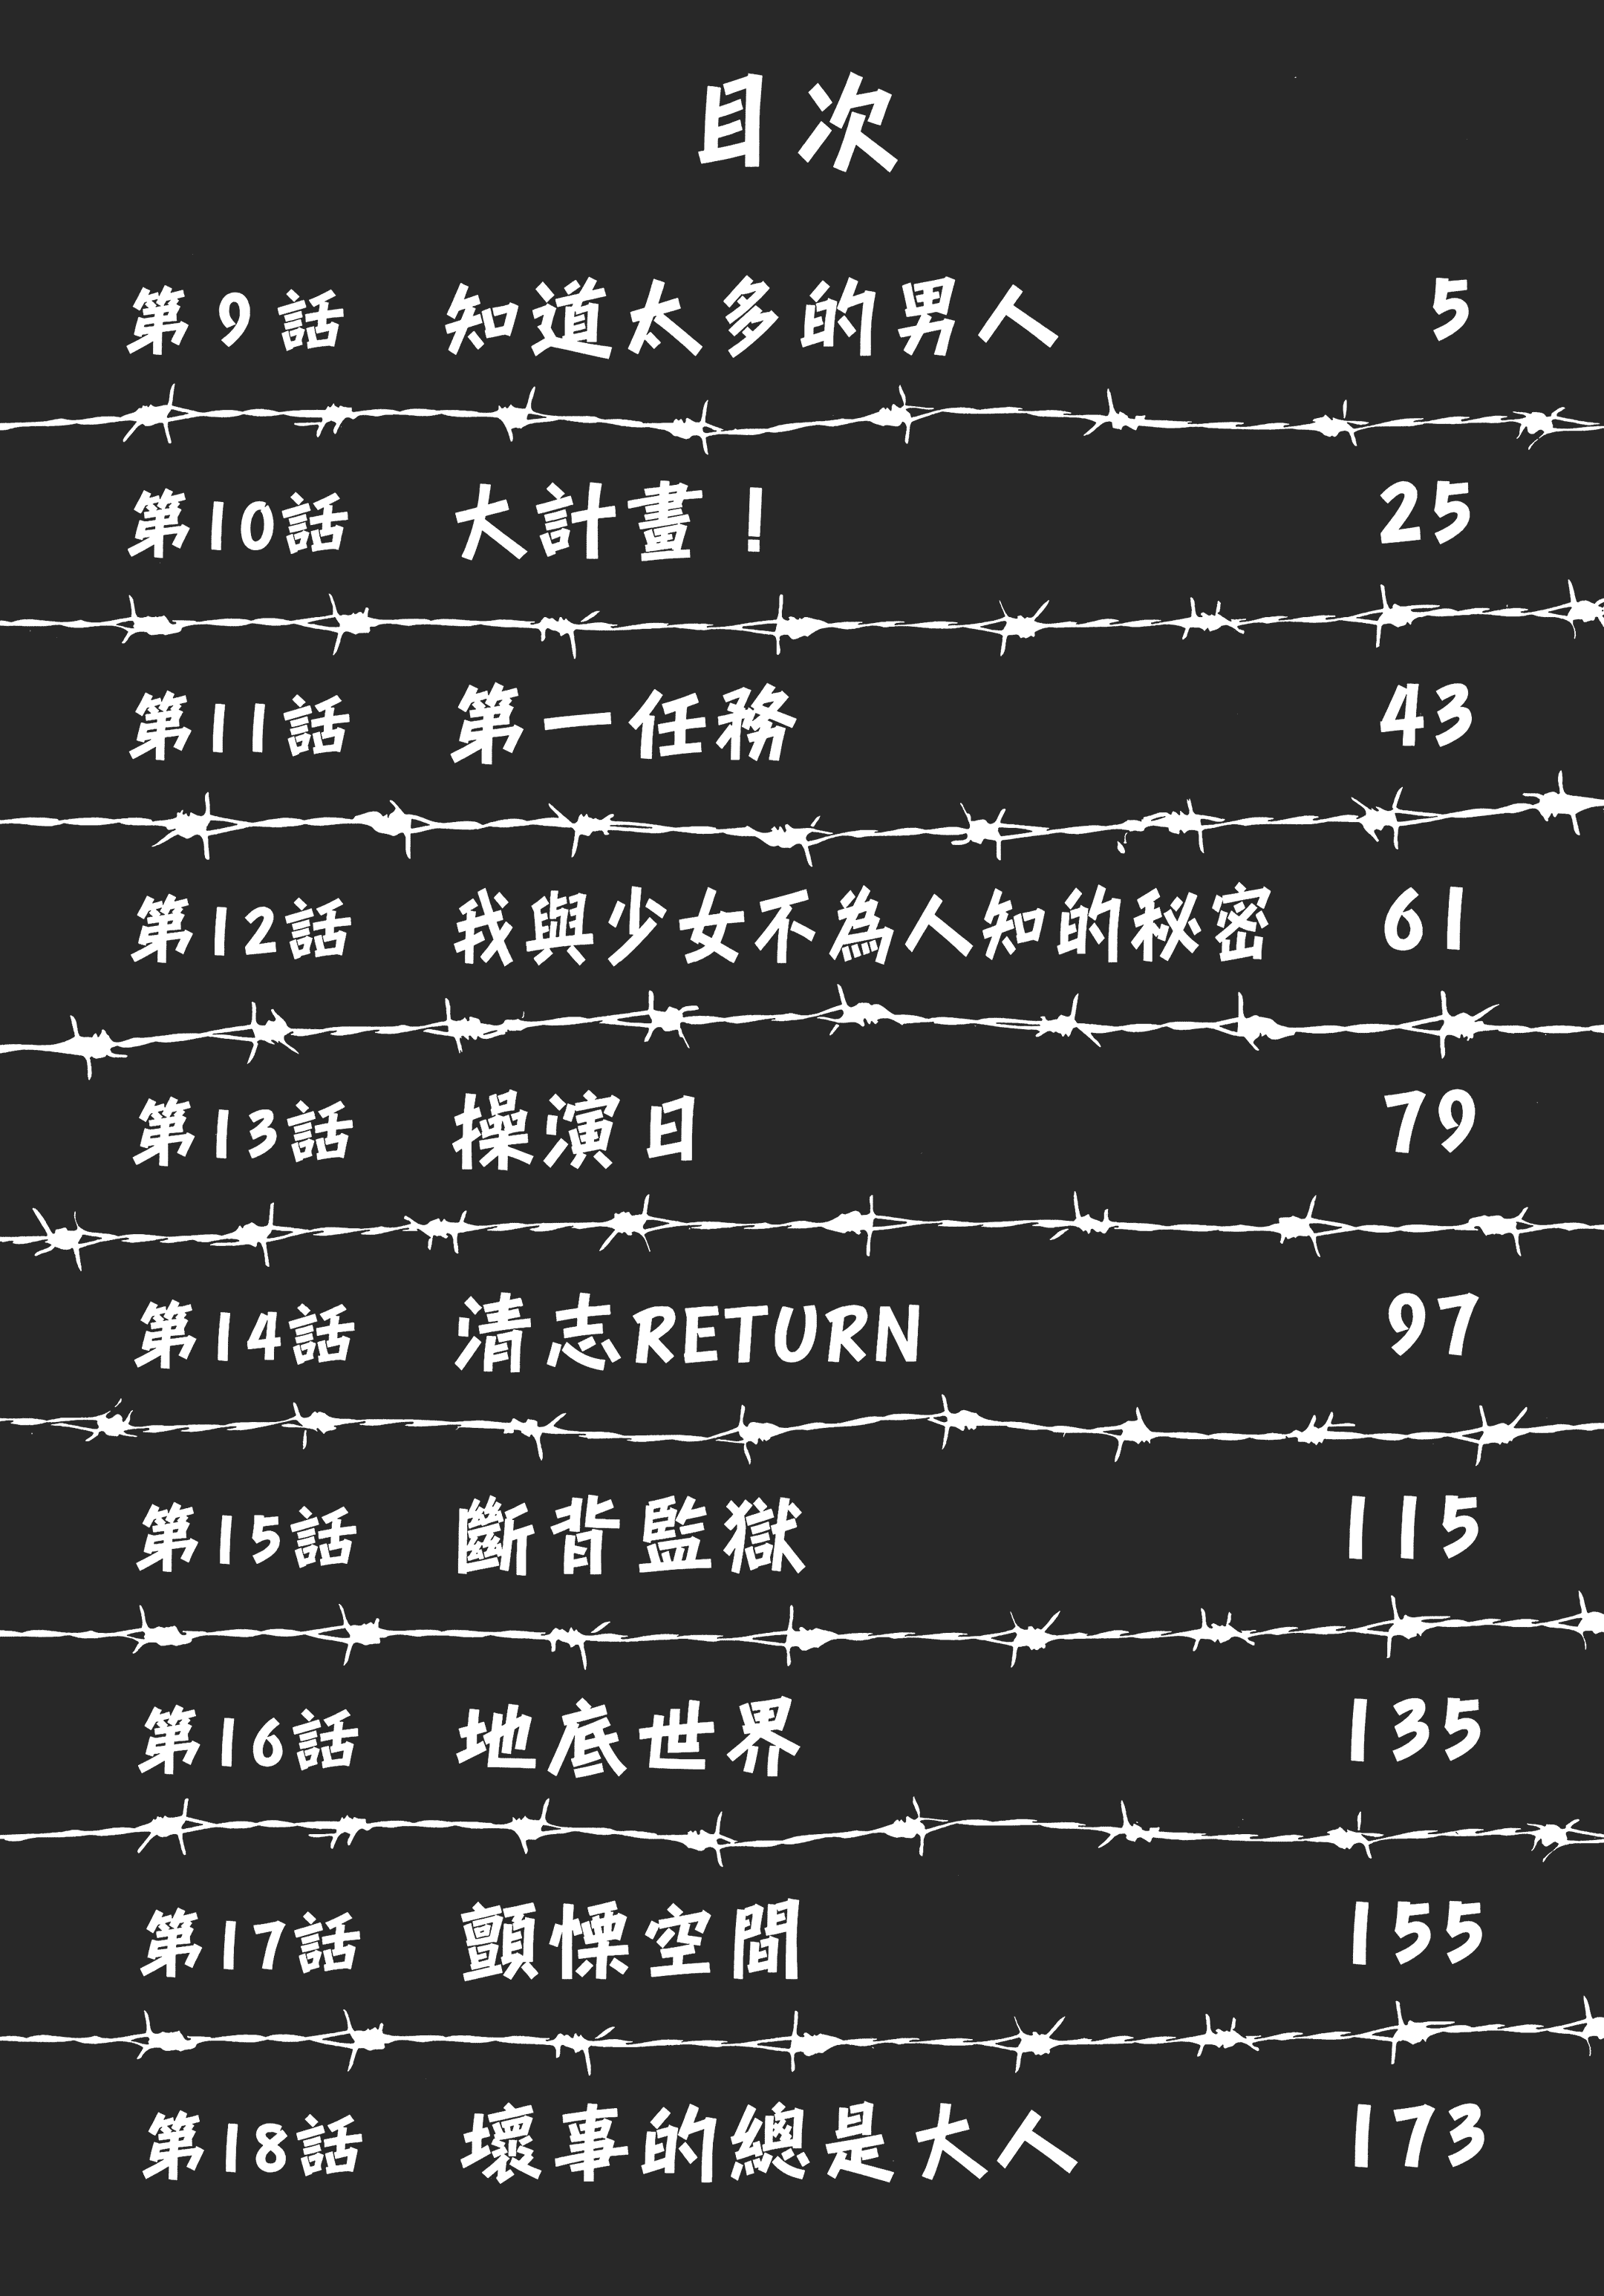 目次
第9話 知道太多的男人 5
第10話 大計畫！ 25
第11話 第一任務 43
第12話 我與少女不為人知的秘密 61
第13話 操演日 79
第14話 清志RETURN 97
第15話 斷背監獄 115
第16話 地底世界 135
第17話 顫慄空間 155
第18話 壞事的總是大人 173